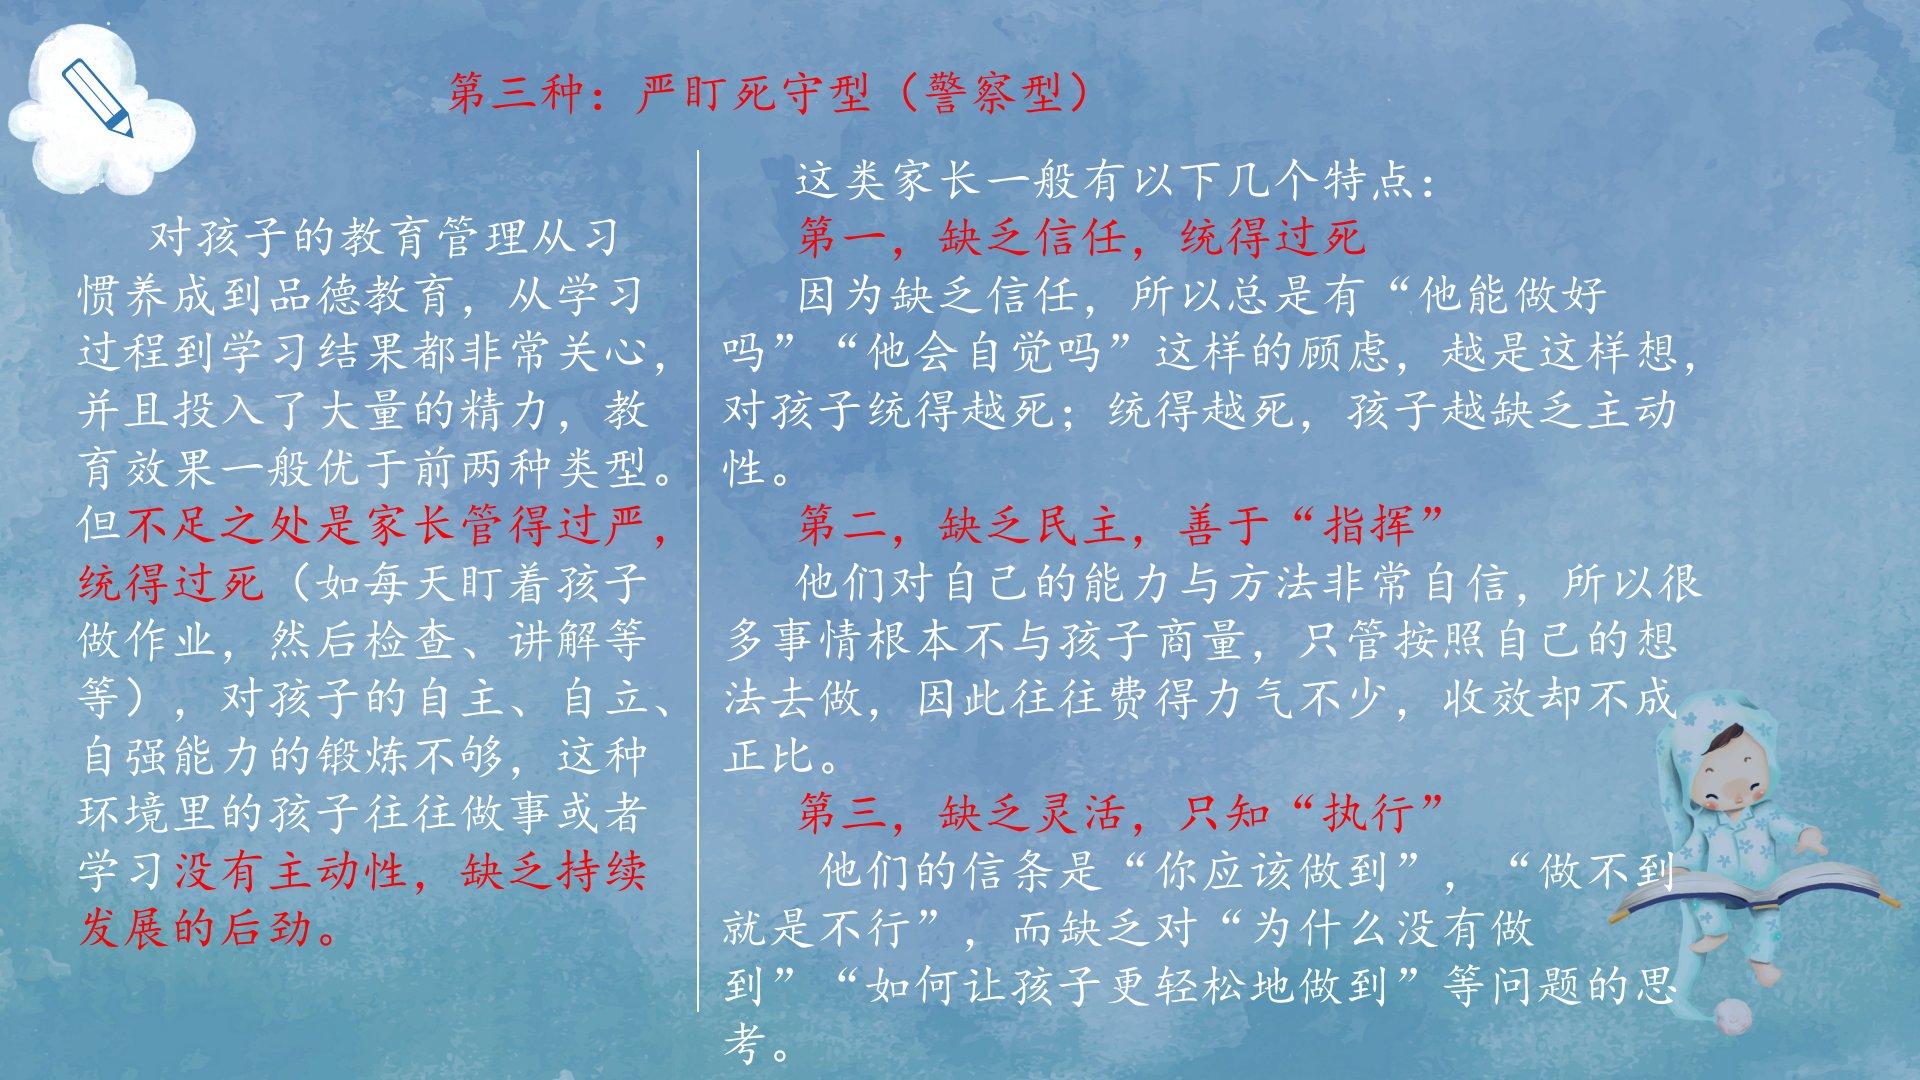 第三种：严盯死守型（警察型）
对孩子的教育管理从习
惯养成到品德教育，从学习
过程到学习结果都非常关心，
并且投入了大量的精力，教
育效果一般优于前两种类型。
但不足之处是家长管得过严，
统得过死（如每天盯着孩子
做作业，然后检查、讲解等
等），对孩子的自主、自立、
自强能力的锻炼不够，这种
环境里的孩子往往做事或者
学习没有主动性，缺乏持续
发展的后劲。
这类家长一般有以下几个特点：
第一，缺乏信任，统得过死
因为缺乏信任，所以总是有“他能做好
吗”“他会自觉吗”这样的顾虑，越是这样想，
对孩子统得越死；统得越死，孩子越缺乏主动
性。
第二，缺乏民主，善于“指挥”
他们对自己的能力与方法非常自信，所以很
多事情根本不与孩子商量，只管按照自己的想
法去做，因此往往费得力气不少，收效却不成
正比。
第三，缺乏灵活，只知“执行”
他们的信条是“你应该做到”，“做不到
就是不行”，而缺乏对“为什么没有做
到”“如何让孩子更轻松地做到”等问题的思
考。